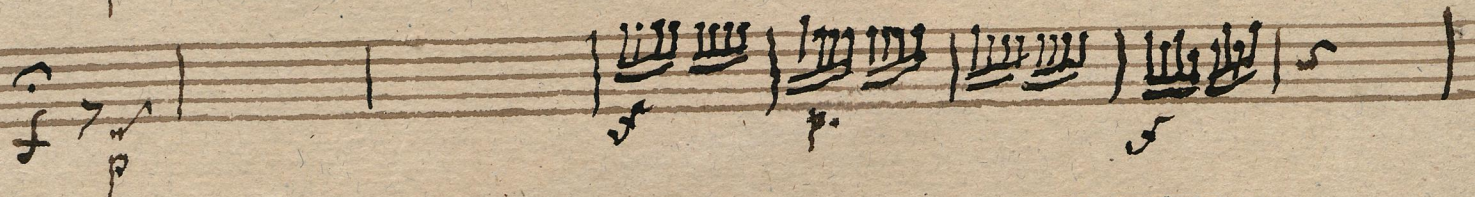 f p f p. f